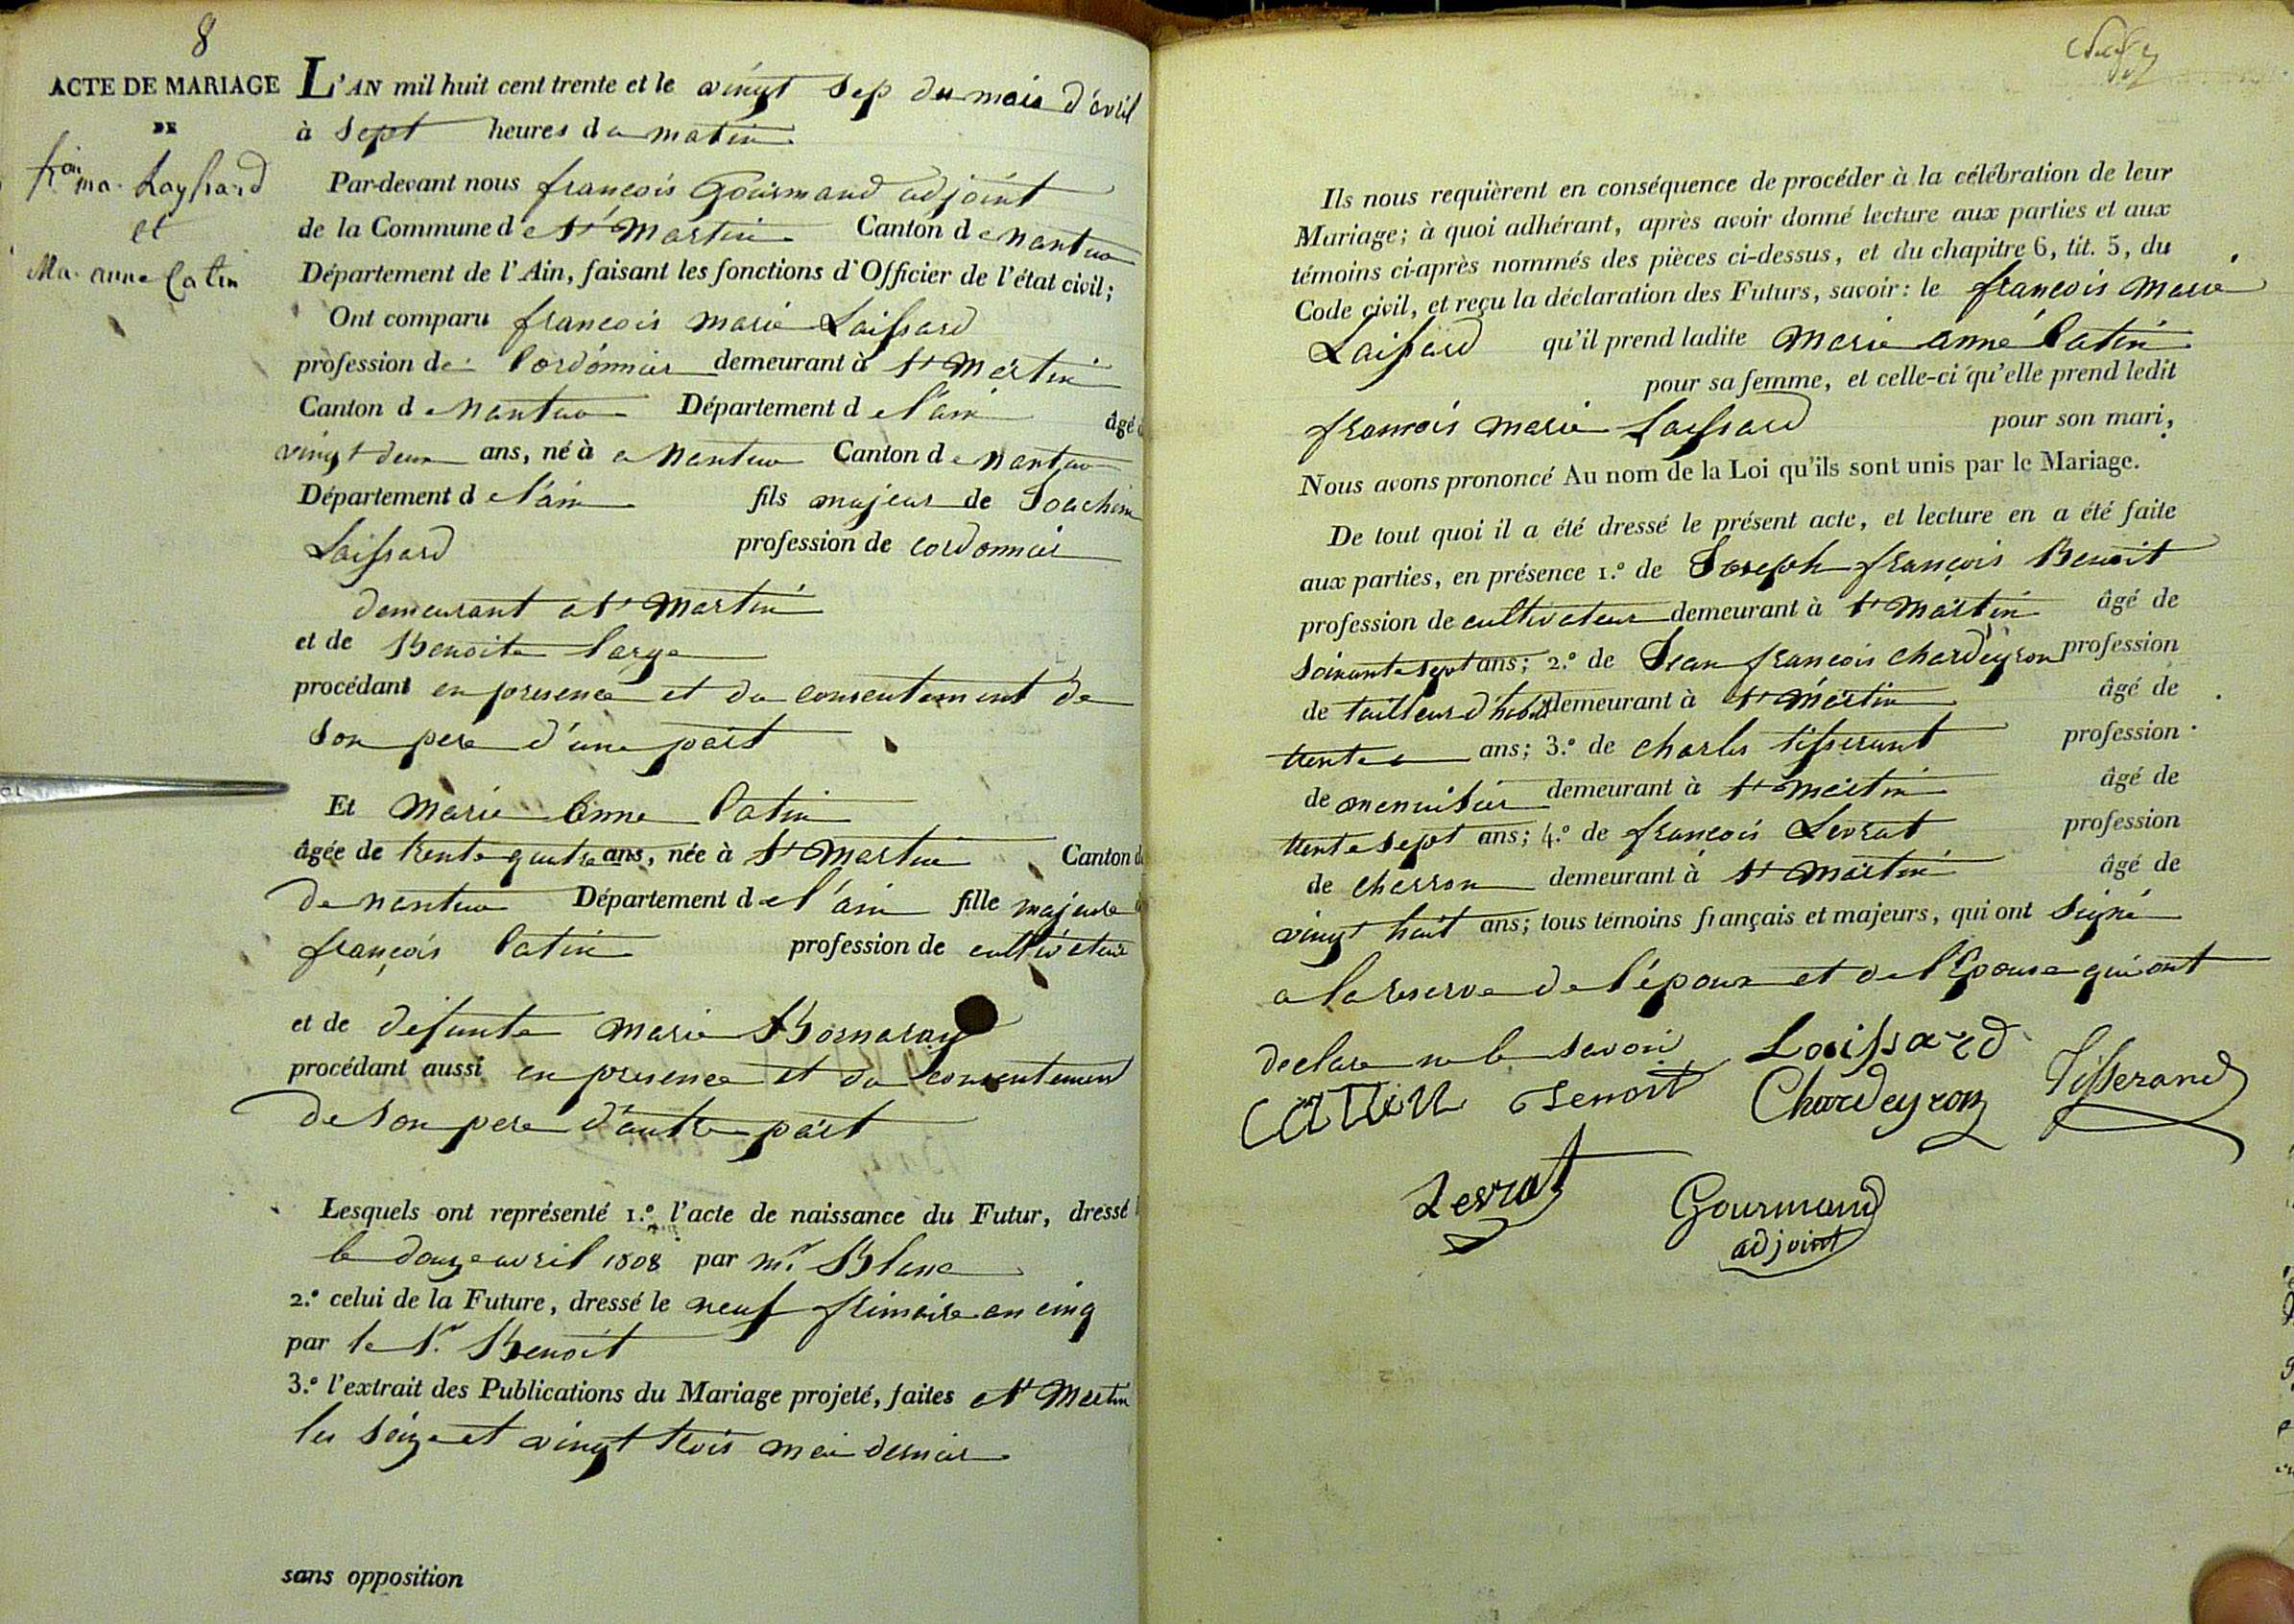 8
ACTE DE MARIAGE
DE
fr.ois ma. Layssard
et
Ma. anne Catin
L'AN mil huit cent trente et le vingt sep du mois d'avril
à sept heures du matin
Par-devant nous françois Gourmand adjoint
de la Commune de St Martin Canton de nantua
Département de l'Ain, faisant les fonctions d'Officier de l'état civil;
Ont comparu francois marie Laissard
profession de Cordonnier demeurant à St Martin
Canton de Nantua Département de l'ain âgé d
vingt deux ans, né à a Nantua Canton de Nantua
Département de l'ain fils majeur de Joachim
Laissard profession de cordonnier
demeurant a St Martin
et de Benoite large
procédant en presence et du consentement de
son pere d'une part
Et Marie Anne Catin
âgée de trente quatre ans, née à St Martin Canton d
de nantua Département de l'ain fille majeure
françois Catin profession de cultivateur
et de défunte Marie
procédant aussi en presence et du consentement
de son pere d'autre part
Lesquels ont représenté 1.º l'acte de naissance du Futur, dressé
le douze avril 1808 par mr. Blanc
2.º celui de la Future, dressé le neuf frimaire an cinq
par le Sr. Benoit
3.º l'extrait des Publications du Mariage projeté, faites a St Martin
les seize et vingt trois mai dernier
sans opposition
Ils nous requièrent en conséquence de procéder à la célébration de leur
Mariage; à quoi adhérant, après avoir donné lecture aux parties et aux
témoins ci-après nommés des pièces ci-dessus, et du chapitre 6, tit. 5, du
Code civil, et reçu la déclaration des Futurs, savoir: le françois Marie
Laissard qu'il prend ladite Marie anne Catin
pour sa femme, et celle-ci qu'elle prend ledit
francois marie Laissard pour son mari,
Nous avons prononcé Au nom de la Loi qu'ils sont unis par le Mariage.
De tout quoi il a été dressé le présent acte, et lecture en a été faite
aux parties, en présence 1.º de Joseph françois Benoit
profession de cultivateur demeurant à St Martin âgé de
soixante sept ans; 2.º de Jean francois Chardeyron profession
de tailleur d'habit demeurant à St Martin âgé de
trente ans; 3.º de Charles tisserant profession
de menuisier demeurant à St Martin âgé de
trente sept ans; 4.º de françois Levrat profession
de charron demeurant à St Martin âgé de
vingt huit ans; tous témoins français et majeurs, qui ont signé
a la reserve de l'époux et de l'Epouse qui ont
declare ne le savoir Laissard
Catin Benoit Chardeyron Tisserand
Levrat Gourmand
adjoint